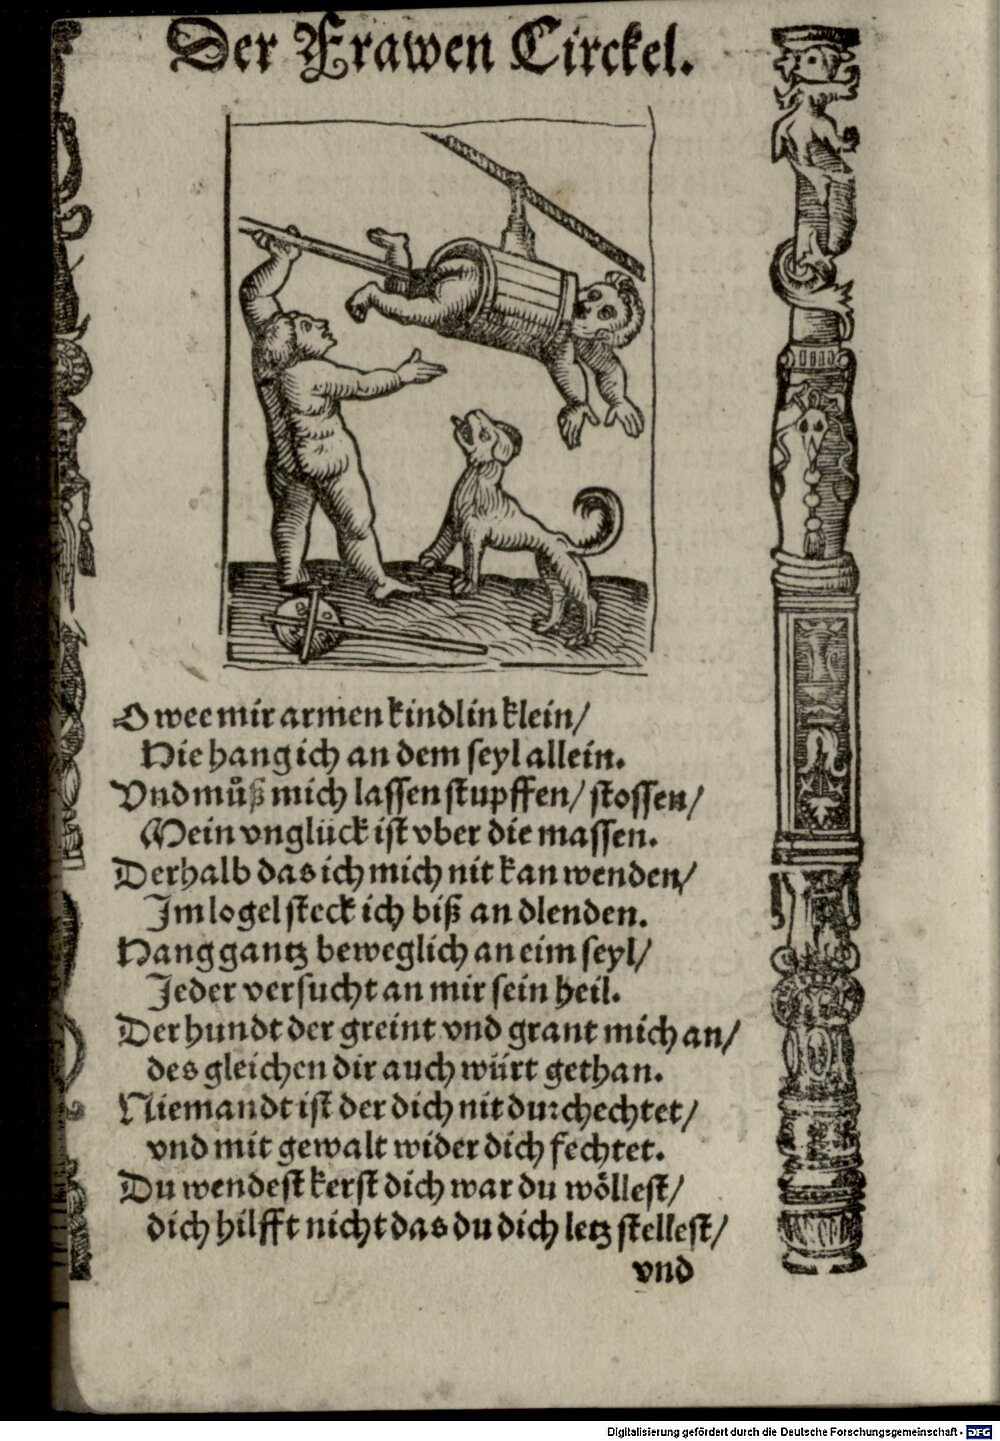 Der Frawen Circkel.
O wee mir armen kindlin klein/
Hie hang ich an dem seyl allein.
Vnd můß mich lassen stupffen/ stossen/
Mein vnglück ist vber die massen.
Derhalb das ich mich nit kan wenden/
Im logel steck ich biß an dlenden.
Hang gantz beweglich an eim seyl/
Jeder versucht an mir sein heil.
Der hundt der greint vnd grant mich an/
des gleichen dir auch würt gethan.
Niemandt ist der dich nit durchechtet/
vnd mit gewalt wider dich fechtet.
Du wendest kerst dich war du wöllest/
dich hilfft nicht das du dich letz stellest/
vnd
Digitalisierung gefördert durch die Deutsche Forschungsgemeinschaft - DFG